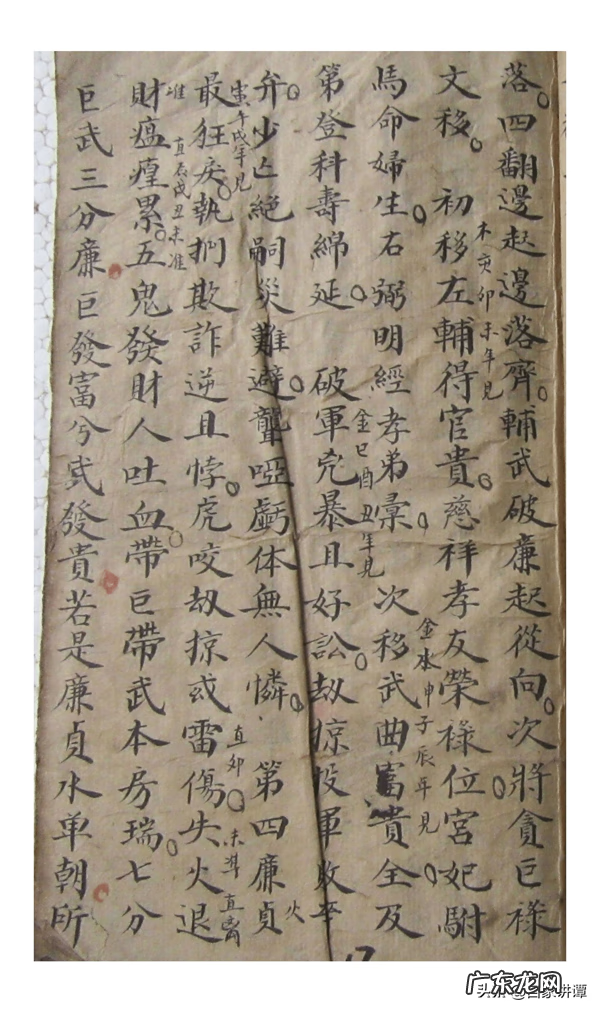 落四翻邊起邊落齊輔武破廉起從向次將貪巨祿
文移 初移左輔得官貴慈祥孝友榮祿位宮妃駙
木亥卯未年見
馬命婦生右弼明經孝弟 次移武曲富貴全及
金水申子辰年見
第登科壽綿延 破軍兇暴且好訟劫掠投軍敗
金巳酉丑年見
弁少亡絕嗣災難避聾啞虧体無人憐 第四廉貞
火
寅午戌年見
最狂戾執拗欺詐逆且悖虎咬劫掠或雷傷失火退
直卯 未 直离
財瘟瘟累五鬼發財人吐血帶巨帶武本房瑞七分
直辰戌丑未准
巨武三分廉巨發富兮武發貴若是廉貞水单朝所
广东龙网